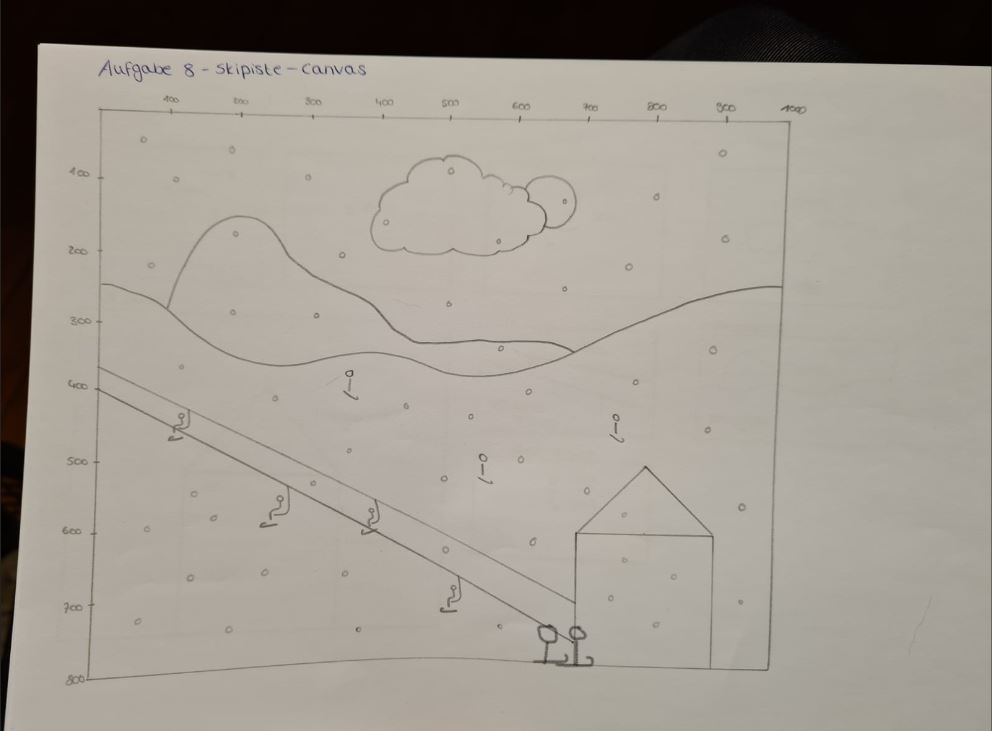 Aufgabe 8 - Skipiste - Canvas
100 200 300 400 500 600 700 800 900 1000
100
200
300
400
500
600
700
800